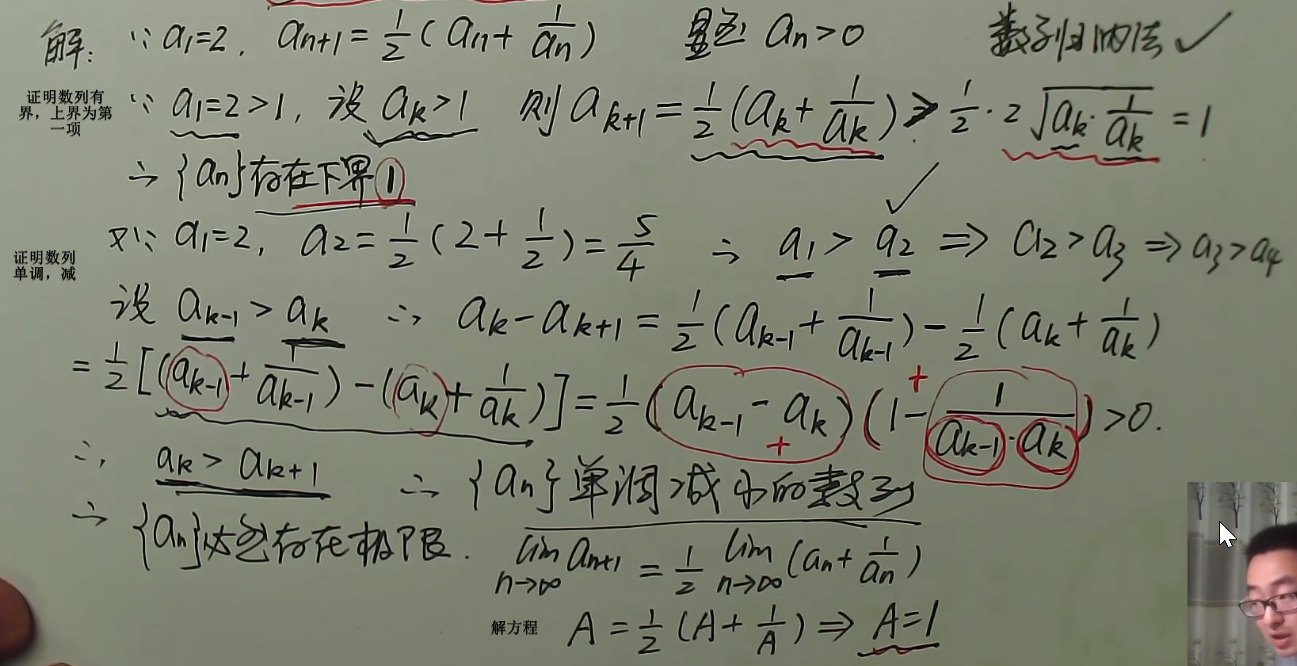 解: ∵ a₁=2, aₙ₊₁=1/2(aₙ+1/aₙ) 显然 aₙ>0 数学归纳法 ✓
证明数列有
界，上界为第
一项
∵ a₁=2>1, 设 aₖ>1 则 aₖ₊₁=1/2(aₖ+1/aₖ)≥1/2·2√(aₖ·1/aₖ)=1
∴ {aₙ}存在下界1
又∵ a₁=2, a₂=1/2(2+1/2)=5/4 ∴ a₁>a₂ ⇒ a₂>a₃ ⇒ a₃>a₄
证明数列
单调，减
设 aₖ₋₁>aₖ ∴ aₖ-aₖ₊₁=1/2(aₖ₋₁+1/aₖ₋₁)-1/2(aₖ+1/aₖ)
=1/2[(aₖ₋₁+1/aₖ₋₁)-(aₖ+1/aₖ)]=1/2(aₖ₋₁-aₖ)(1-1/(aₖ₋₁·aₖ))>0.
+ +
∴ aₖ>aₖ₊₁ ∴ {aₙ}单调减小的数列
∴ {aₙ}必存在极限.
lim n→∞ aₙ₊₁ = 1/2 lim n→∞ (aₙ+1/aₙ)
解方程
A=1/2(A+1/A) ⇒ A=1